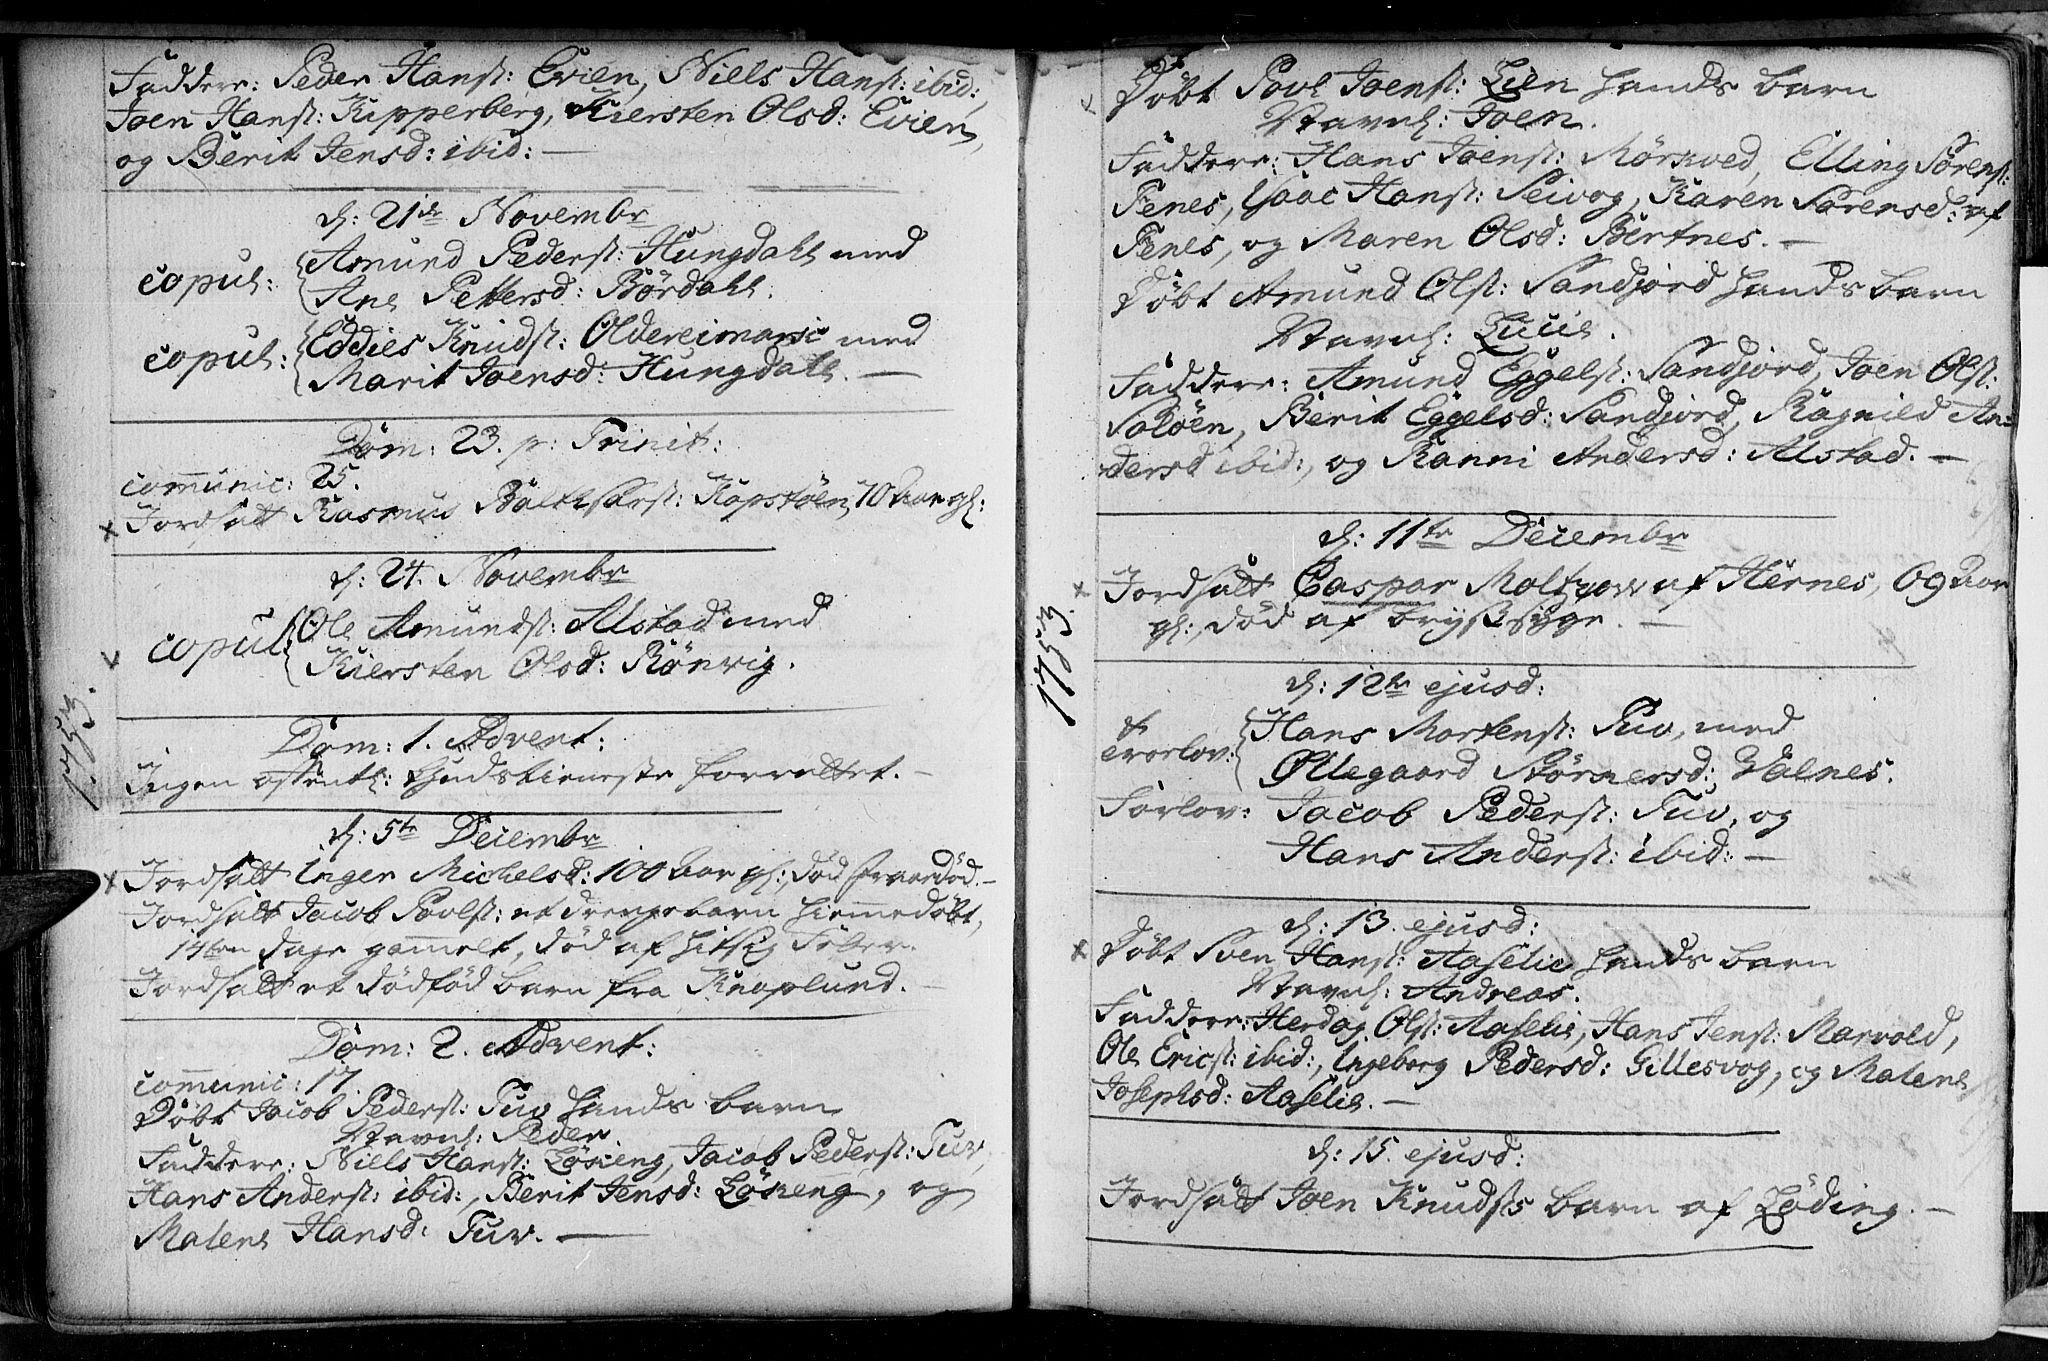 Faddere: Peder Hanss: Evien, Niels Hanss: ibid:,
Joen Hanss: Kipperberg, Kiersten Olsd: Evien,
og Berit Jensd: ibid: —
d: 21de Novembr
copul: Amund Pederss: Hungdahl med
Ane Pettersd: Bördahl.
copul: Eddies Knudss: Oldereimarsic med
Marit Joensd: Hungdahl. —
Dom: 23. p: Trinit:
communic: 25.
× Jordsatt Rasmus Balthsarss: Kopstöen, 70 Aar gl:
d: 24. Novembr
copul: Ole Amundss: Alstad med
Kiersten Olsd: Rönvig.
1753.
Dom: 1. Advent:
Ingen offentl: Gudstieneste forrettet. —
d: 5te Decembr
× Jordsatt Inger Michelsd: 100 Aar gl:, död straxdöd. —
Jordsatt Jacob Povlss: et drengebarn hiemmedöbt,
14ten dage gammelt, död af hitsig Feber.
Jordsatt et dödföd barn fra Knaplund. —
Dom: 2. Advent:
communic: 17.
Döbt Jacob Pederss: Tuv hands barn
Navnl: Peder
Faddere: Niels Hanss: Löseng, Jacob Pederss: Tuv,
Hans Anderss: ibid:, Berit Jensd: Löseng, og
Malene Hansd: Tuv. —
Döbt Povl Joenss: Lien hands barn
Navnl: Joen.
Faddere: Hans Joenss: Mörkved, Elling Sörenss:
Fenes, Isaac Hanss: Seivog, Karen Sörensd: af
Fenes, og Maren Olsd: Bertnes. —
Döbt Amund Olss: Sandjord hands barn
Navnl: Lucie.
Faddere: Amund Eggelss: Sandjord, Joen Olss:
Soløen, Berit Eggelsd: Sandjord, Ragnild An-
dersd ibid:, og Ranni Andersd: Alstad. —
d: 11te Decembr
× Jordsatt Caspar Moltzow af Hernes, 69 Aar
gl:, död af brystsyge. —
1753.
d: 12te ejusd:
Hans Mortenss: Tuv, med
Øllegaard Störmersd: Valnes.
Forlov: Jacob Pederss: Tuv, og
Hans Anderss: ibid: —
d: 13. ejusd:
× Döbt Sven Hanss: Aaselie hands barn
Navnl: Andreas.
Faddere: Herdag Olss: Aaselie, Hans Jenss: Marvold,
Ole Ericss: ibid:, Ingeborg Pedersd: Gillesvog, og Malene
Josephsd: Aaselie. —
d: 15. ejusd:
Jordsatt Joen Knudss barn af Löding. —